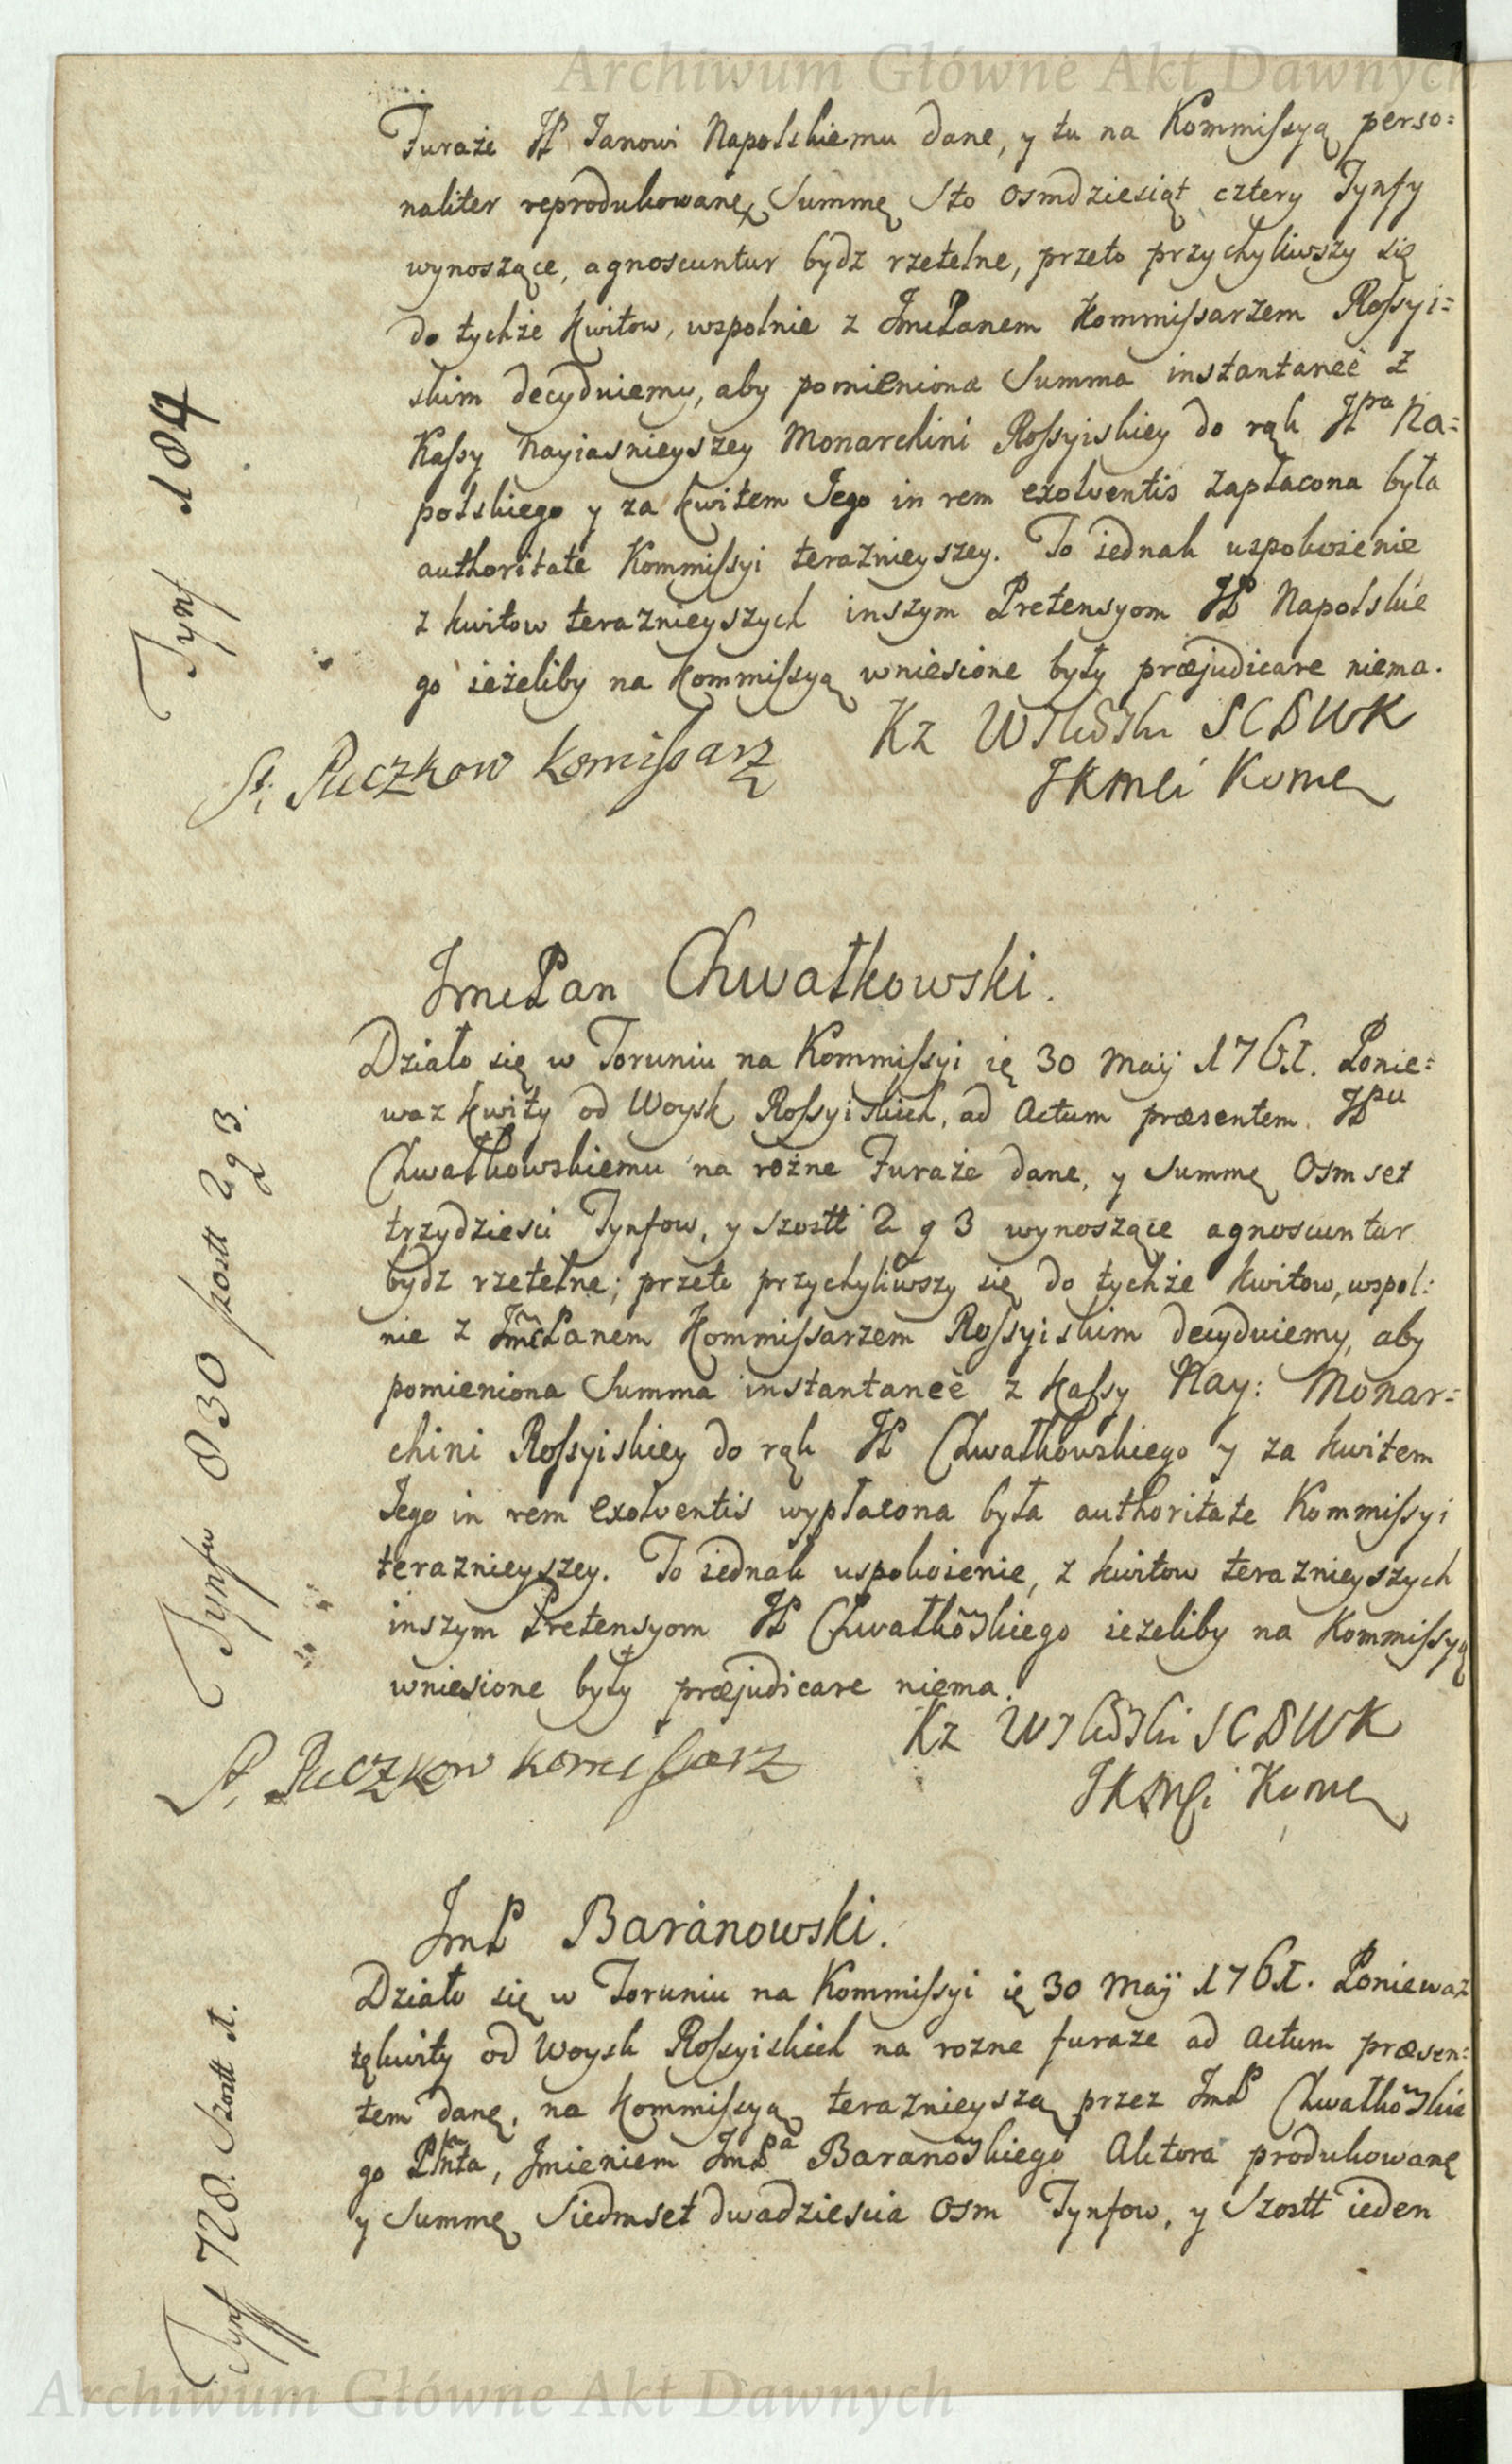 Archiwum Główne Akt Dawnych
Furaże JP Janowi Napolskiemu dane, y tu na Kommissyą perso=
naliter reprodukowane, Summę Sto osmdziesiąt cztery Tynfy
wynoszące, agnoscuntur bydz rzetelne, przeto przychyliwszy się
do tychże kwitow, wspolnie z JmcPanem Kommissarzem Rossyi=
skim decyduiemy, aby pomieniona Summa instantaneè z
Kassy Nayiasnieyszey Monarchini Rossyiskiey do rąk JPra Na=
polskiego y za kwitem Jego in rem exolventis zapłacona była
authoritate Kommissyi teraznieyszey. To iednak uspokoienie
z kwitow teraznieyszych inszym Pretensyom JP Napolskie
go ieżeliby na Kommissyą wniesione były præjudicare niema.
Tynf 184
St. Puczkow Komissarz
Kz SCBWK
JKMci Kome
JmcPan Chwałkowski.
Działo się w Toruniu na Kommissyi ię 30 Maij 1761. Ponie=
waz kwity od Woysk Rossyiskich, ad Actum præsentem JPu
Chwałkowskiemu na rożne Furaże dane, y Summę Osmset
trzydziesci Tynfow, y Szostt 2 g 3 wynoszące agnoscuntur
bydz rzetelne; przeto przychyliwszy się do tychże kwitow, wspol:
nie z JmcPanem Kommissarzem Rossyiskim decyduiemy, aby
pomieniona Summa instantaneè z Kassy Nay: Monar=
chini Rossyiskiey do rąk JP Chwałkowskiego y za kwitem
Jego in rem exolventis wypłacona była authoritate Kommissyi
teraznieyszey. To iednak uspokoienie, z kwitow teraznieyszych
inszym Pretensyom JP Chwałkoskiego ieżeliby na Kommissyą
wniesione były præjudicare niema.
Tynfw 830 szostt 2 g 3.
St. Puczkow Komissarz
Kz SCBWK
JKMci Kome
JmP Baranowski.
Działo się w Toruniu na Kommissyi ię 30 Maij 1761. Poniewaz
tę kwity od Woysk Rossyiskich na rozne furaze ad Actum præsen=
tem danę, na Kommissyą teraznieyszą przez JmP Chwałkoskie
go Plnta, Jmieniem JmPa Baranoskiego Aktora produkowanę
y Summę Siedmset dwadziescia osm Tynfow, y Szostt ieden
Tynf 728. Szostt 1.
Archiwum Główne Akt Dawnych